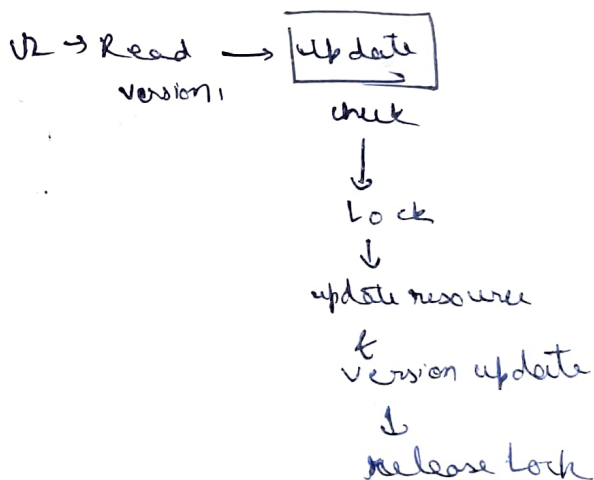 U2 → Read → update
version 1
check
↓
Lock
↓
update resource
&
version update
↓
release Lock